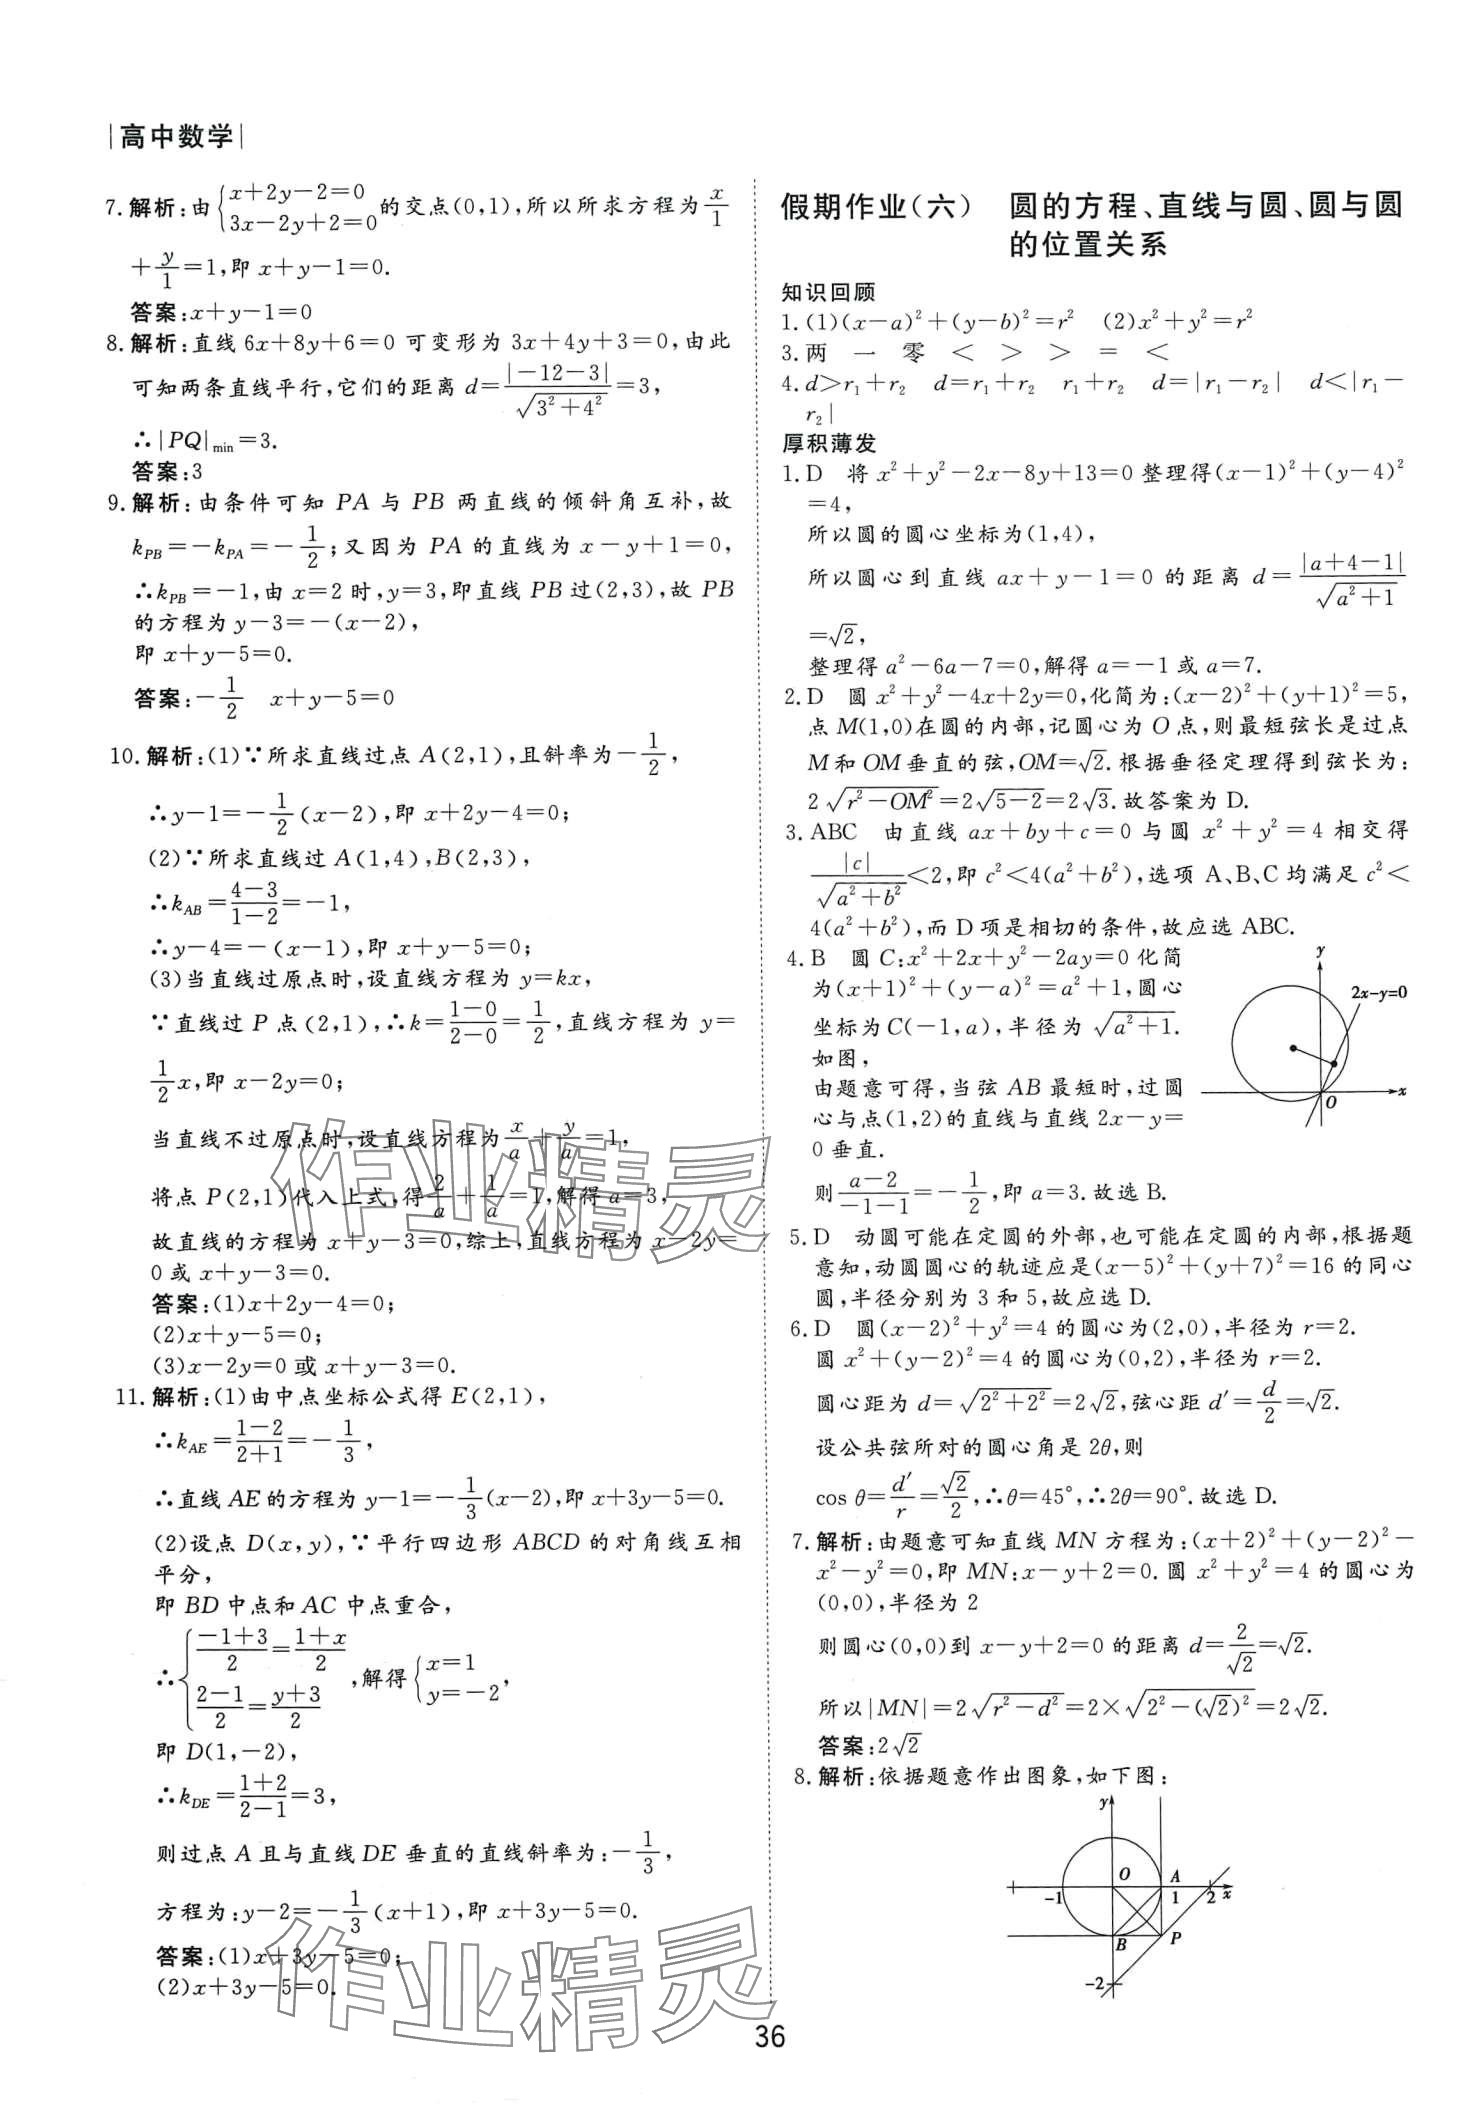 |高中数学|
7.解析:由{x+2y-2=0 3x-2y+2=0 的交点(0,1),所以所求方程为x/1
+y/1=1,即 x+y-1=0.
答案:x+y-1=0
8.解析:直线 6x+8y+6=0 可变形为 3x+4y+3=0,由此
可知两条直线平行,它们的距离 d=|-12-3|/√(3²+4²)=3,
∴|PQ|min=3.
答案:3
9.解析:由条件可知 PA 与 PB 两直线的倾斜角互补,故
k_PB=-k_PA=-1/2;又因为 PA 的直线为 x-y+1=0,
∴k_PB=-1,由 x=2 时,y=3,即直线 PB 过(2,3),故 PB
的方程为 y-3=-(x-2),
即 x+y-5=0.
答案:-1/2 x+y-5=0
10.解析:(1)∵所求直线过点 A(2,1),且斜率为-1/2,
∴y-1=-1/2(x-2),即 x+2y-4=0;
(2)∵所求直线过 A(1,4),B(2,3),
∴k_AB=(4-3)/(1-2)=-1,
∴y-4=-(x-1),即 x+y-5=0;
(3)当直线过原点时,设直线方程为 y=kx,
∵直线过 P 点(2,1),∴k=(1-0)/(2-0)=1/2,直线方程为 y=
1/2x,即 x-2y=0;
当直线不过原点时,设直线方程为x/a+y/a=1,
将点 P(2,1)代入上式,得2/a+1/a=1,解得 a=3,
故直线的方程为 x+y-3=0,综上,直线方程为 x-2y=
0 或 x+y-3=0.
答案:(1)x+2y-4=0;
(2)x+y-5=0;
(3)x-2y=0 或 x+y-3=0.
11.解析:(1)由中点坐标公式得 E(2,1),
∴k_AE=(1-2)/(2+1)=-1/3,
∴直线 AE 的方程为 y-1=-1/3(x-2),即 x+3y-5=0.
(2)设点 D(x,y),∵平行四边形 ABCD 的对角线互相
平分,
即 BD 中点和 AC 中点重合,
∴{(-1+3)/2=(1+x)/2 (2-1)/2=(y+3)/2,解得{x=1 y=-2,
即 D(1,-2),
∴k_DE=(1+2)/(2-1)=3,
则过点 A 且与直线 DE 垂直的直线斜率为:-1/3,
方程为:y-2=-1/3(x+1),即 x+3y-5=0.
答案:(1)x+3y-5=0;
(2)x+3y-5=0.
假期作业(六) 圆的方程、直线与圆、圆与圆
的位置关系
知识回顾
1.(1)(x-a)²+(y-b)²=r² (2)x²+y²=r²
3.两 一 零 < > > = <
4.d>r₁+r₂ d=r₁+r₂ r₁+r₂ d=|r₁-r₂| d<|r₁-
r₂|
厚积薄发
1.D 将 x²+y²-2x-8y+13=0 整理得(x-1)²+(y-4)²
=4,
所以圆的圆心坐标为(1,4),
所以圆心到直线 ax+y-1=0 的距离 d=|a+4-1|/√(a²+1)
=√2,
整理得 a²-6a-7=0,解得 a=-1 或 a=7.
2.D 圆 x²+y²-4x+2y=0,化简为:(x-2)²+(y+1)²=5,
点 M(1,0)在圆的内部,记圆心为 O 点,则最短弦长是过点
M 和 OM 垂直的弦,OM=√2.根据垂径定理得到弦长为:
2√(r²-OM²)=2√(5-2)=2√3.故答案为 D.
3.ABC 由直线 ax+by+c=0 与圆 x²+y²=4 相交得
|c|/√(a²+b²)<2,即 c²<4(a²+b²),选项 A、B、C 均满足 c²<
4(a²+b²),而 D 项是相切的条件,故应选 ABC.
4.B 圆 C:x²+2x+y²-2ay=0 化简
为(x+1)²+(y-a)²=a²+1,圆心
坐标为 C(-1,a),半径为 √(a²+1).
如图,
由题意可得,当弦 AB 最短时,过圆
心与点(1,2)的直线与直线 2x-y=
0 垂直.
y
2x-y=0
O
x
则(a-2)/(-1-1)=-1/2,即 a=3.故选 B.
5.D 动圆可能在定圆的外部,也可能在定圆的内部,根据题
意知,动圆圆心的轨迹应是(x-5)²+(y+7)²=16 的同心
圆,半径分别为 3 和 5,故应选 D.
6.D 圆(x-2)²+y²=4 的圆心为(2,0),半径为 r=2.
圆 x²+(y-2)²=4 的圆心为(0,2),半径为 r=2.
圆心距为 d=√(2²+2²)=2√2,弦心距 d′=d/2=√2.
设公共弦所对的圆心角是 2θ,则
cos θ=d′/r=√2/2,∴θ=45°,∴2θ=90°.故选 D.
7.解析:由题意可知直线 MN 方程为:(x+2)²+(y-2)²-
x²-y²=0,即 MN:x-y+2=0.圆 x²+y²=4 的圆心为
(0,0),半径为 2
则圆心(0,0)到 x-y+2=0 的距离 d=2/√2=√2.
所以|MN|=2√(r²-d²)=2×√(2²-(√2)²)=2√2.
答案:2√2
8.解析:依据题意作出图象,如下图:
y
O A
-1 1 2 x
B P
-2
36
作业精灵
作业精灵